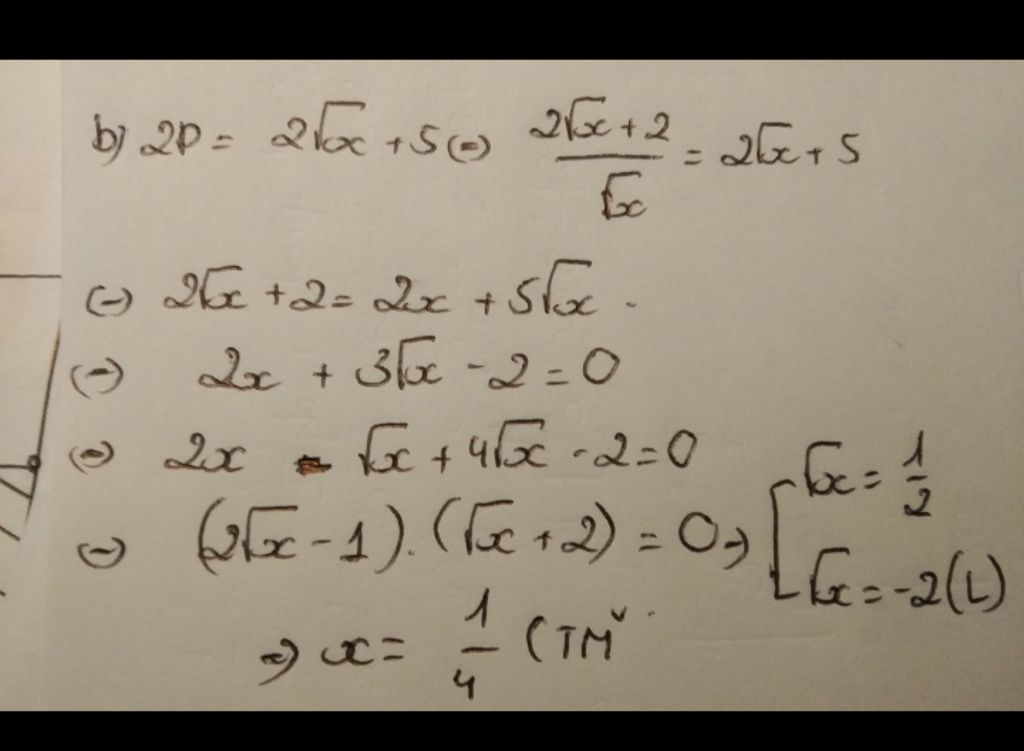 b) 2P = 2√x + 5 (=) (2√x + 2)/√x = 2√x + 5
(=) 2√x + 2 = 2x + 5√x .
(=) 2x + 3√x - 2 = 0
(=) 2x - √x + 4√x - 2 = 0
(=) (2√x - 1).(√x + 2) = 0 => [ √x = 1/2
√x = -2 (L)
=> x = 1/4 (TM